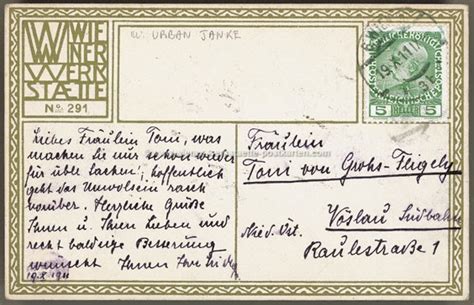 WIE
NER
WERK
STAETTE
No 291.
u: URBAN JANKE
19.X.11
5 HELLER 5
Liebes Fräulein Toni, was
machen Sie mir schon wieder
für üble Sachen! hoffentlich
geht das Unwolsein rasch
vorüber. Herzliche Grüße
Ihnen u. Ihren Lieben und
recht baldige Besserung
wünscht Ihnen
Fräulein
Toni von Grohs-Fligely
Vöslau Südbahn
Nied. Öst.
Raulestraße 1